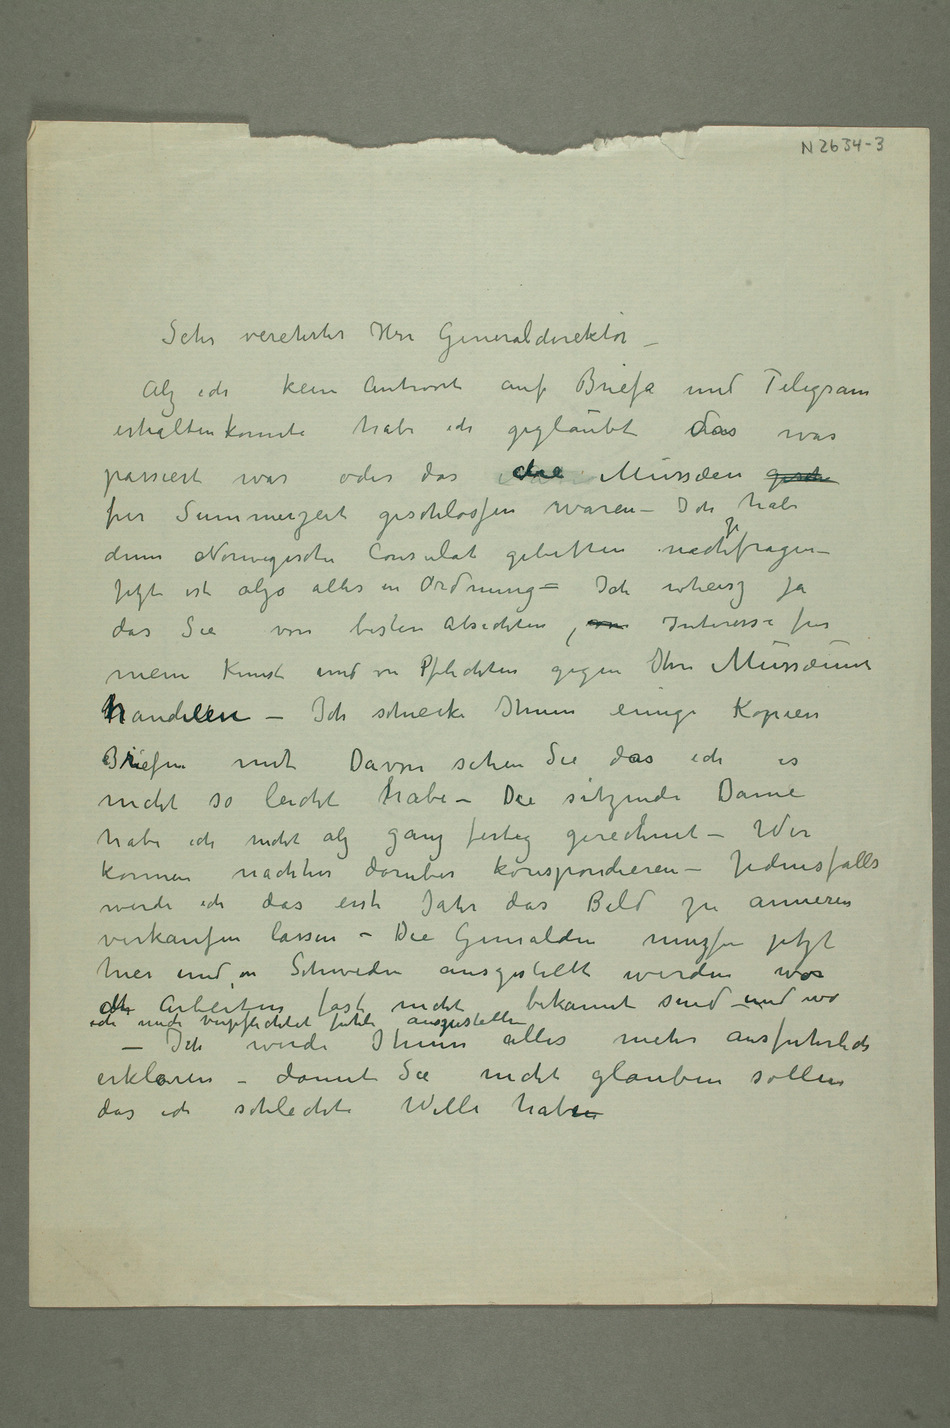 N 2634-3
Sehr verehrter Herr Generaldirektör –
Alz ich kein Antwort auf Briefe und Telegram
erhalten konnte habe ich geglaubt das was
passiert war oder das die Mussæen gesch
für Summerzeit geschlossen waren – Ich habe
denn Norwegische Consulat gebetten nachzufragen –
Jetzt ist alzo alles in Ordnung – Ich wheisz ja
das Sie von besten Absichten, von Interesse für
mein Kunst und von Pflichten gegen Ihre Mussæum
handelen – Ich schiecke Ihnen einige Kopien
Briefen mit Davon sehen Sie das ich es
nicht so leicht habe – Die sitzende Dame
habe ich nicht alz ganz fertig gerechnet – Wir
können nachher daruber korrespondieren – Jedensfalls
werde ich das erste Jahr das Bild zu anneren
verkaufen lassen – Die Gemälden muszen jetzt
hier und in Schweden ausgestellt werden wo
die Arbeiten fast nicht bekannt sind und wo
ich mich verpflichtet fühle auszustellen
– Ich werde Ihnen alles mehr ausfuhrlich
erklären – damit Sie nicht glauben sollen
das ich schlechte Wille haben